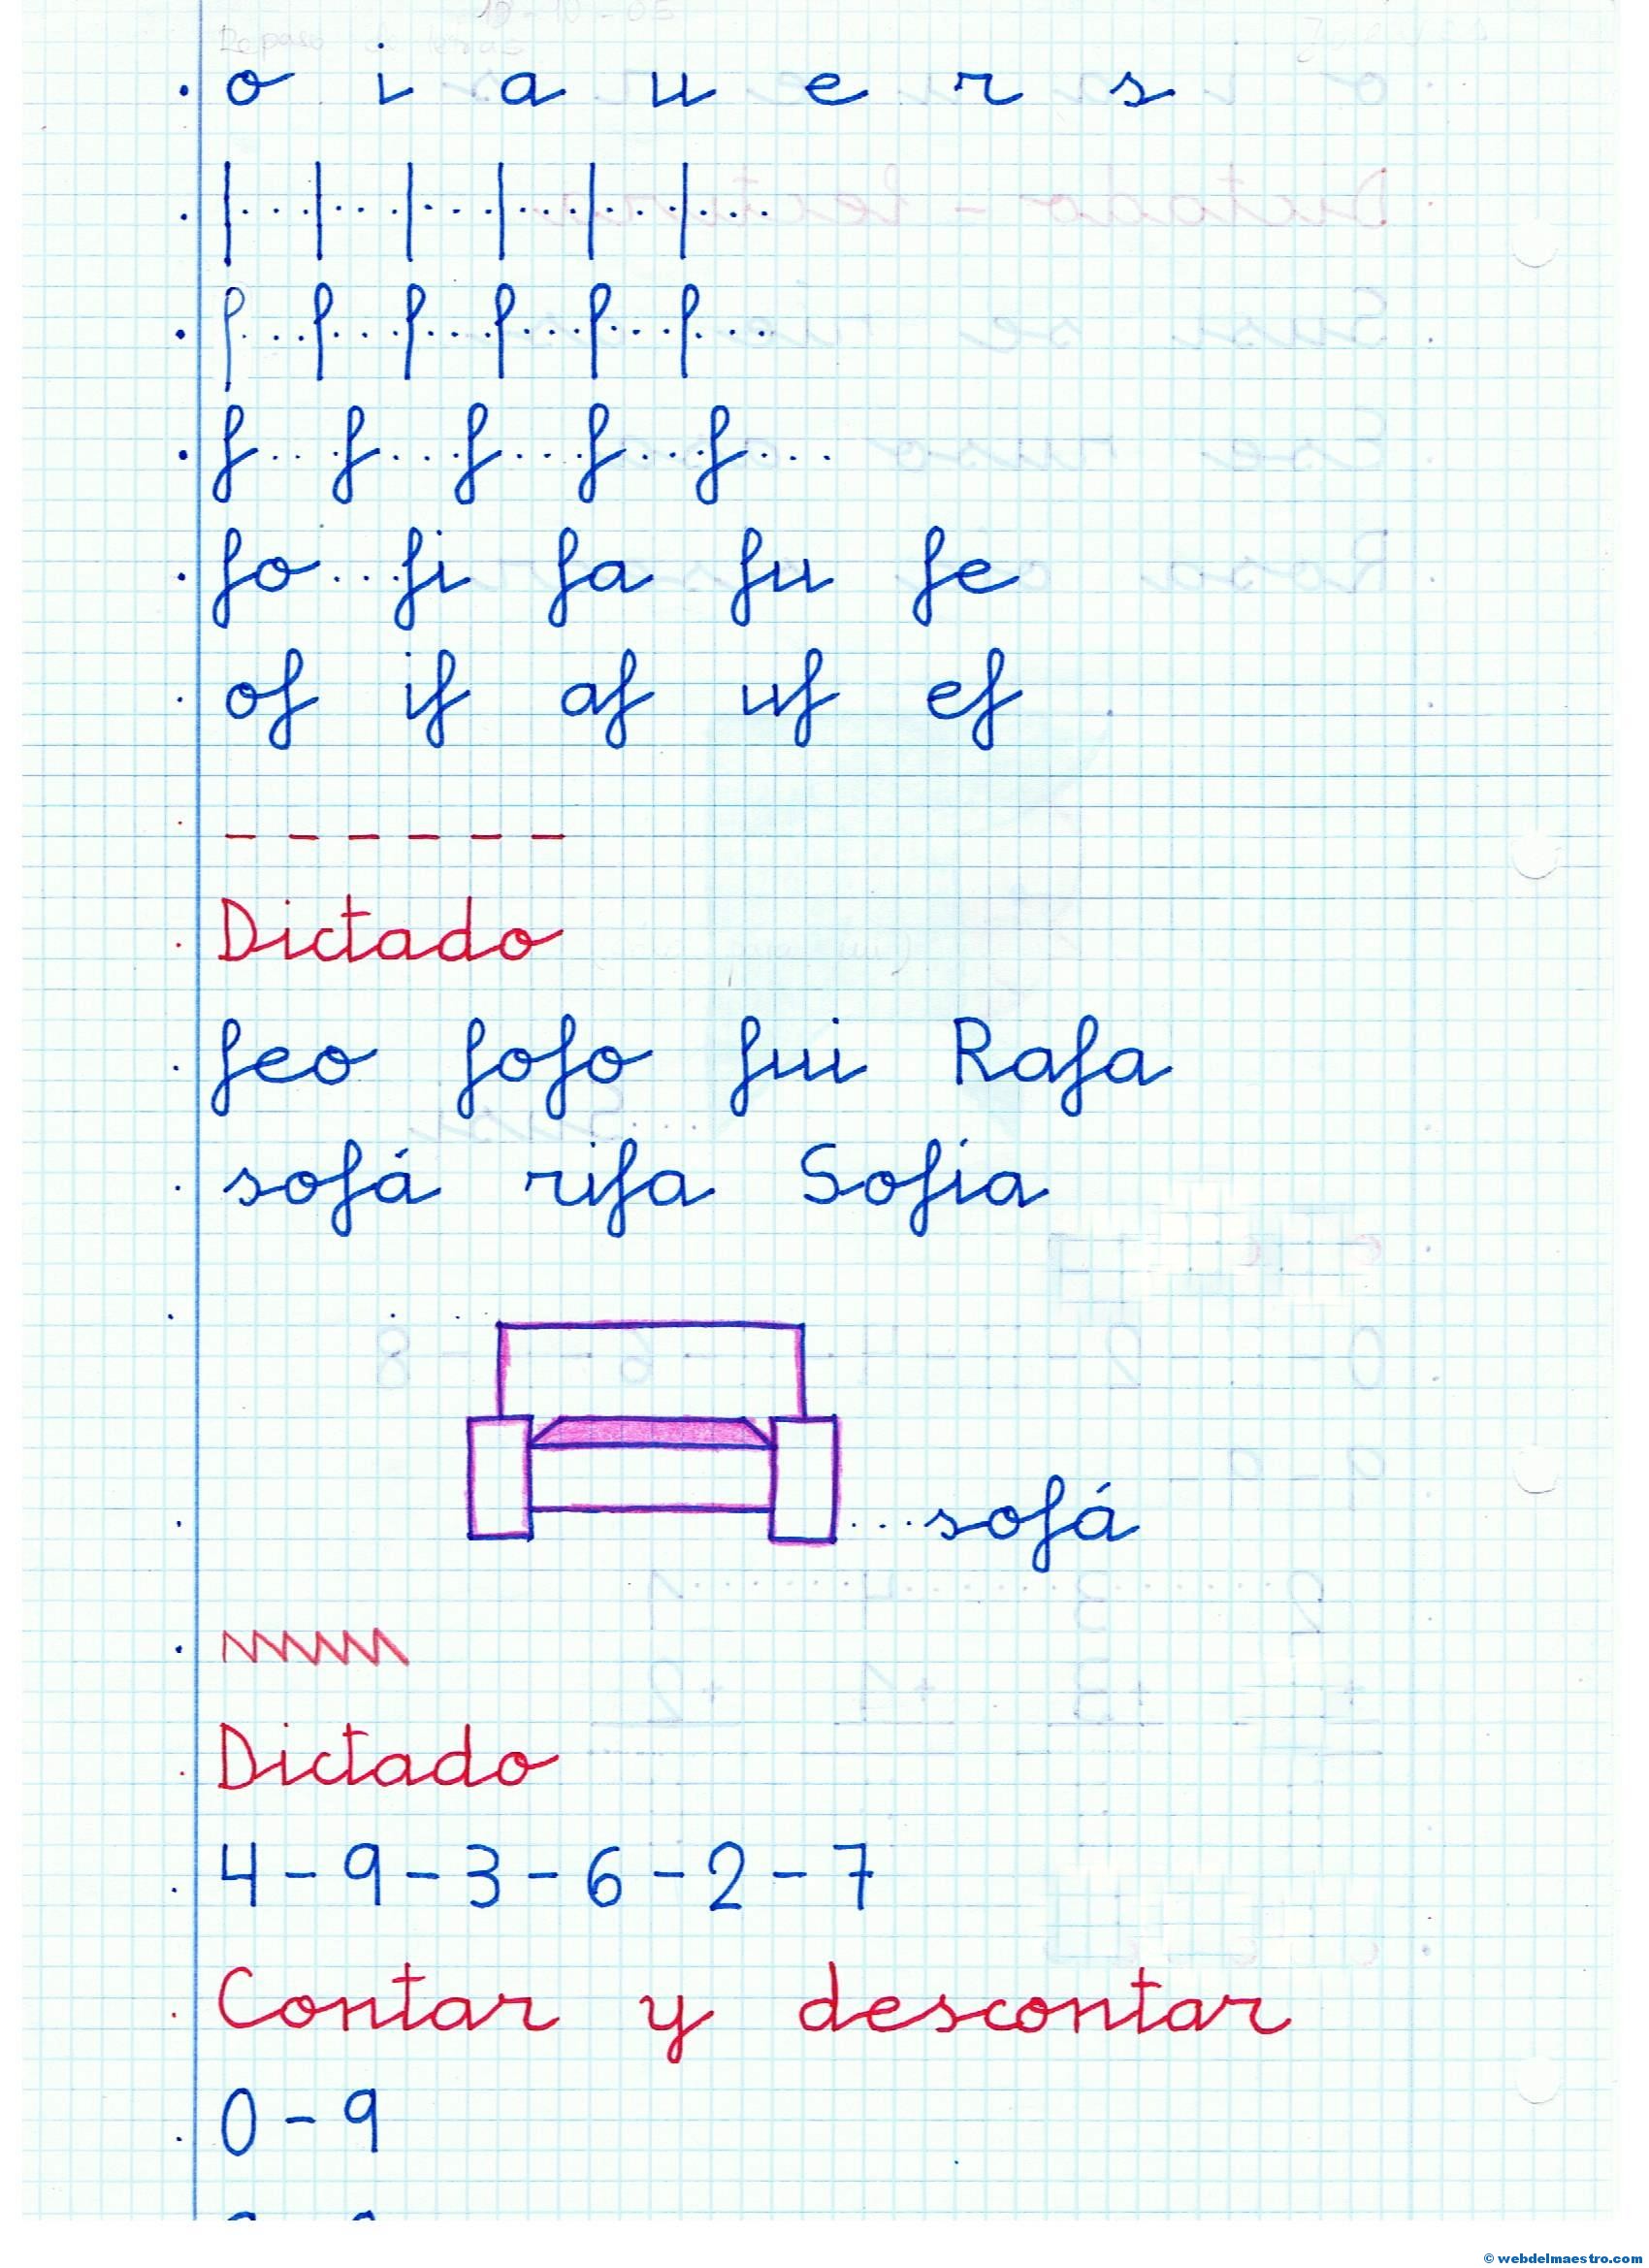 o i a u e r s
f... f... f... f... f...
fo...fi fa fu fe
of if af uf ef
Dictado
feo fofo fui Rafa
sofá rifa Sofía
...sofá
Dictado
4-9-3-6-2-7
Contar y descontar
0-9
© webdelmaestro.com